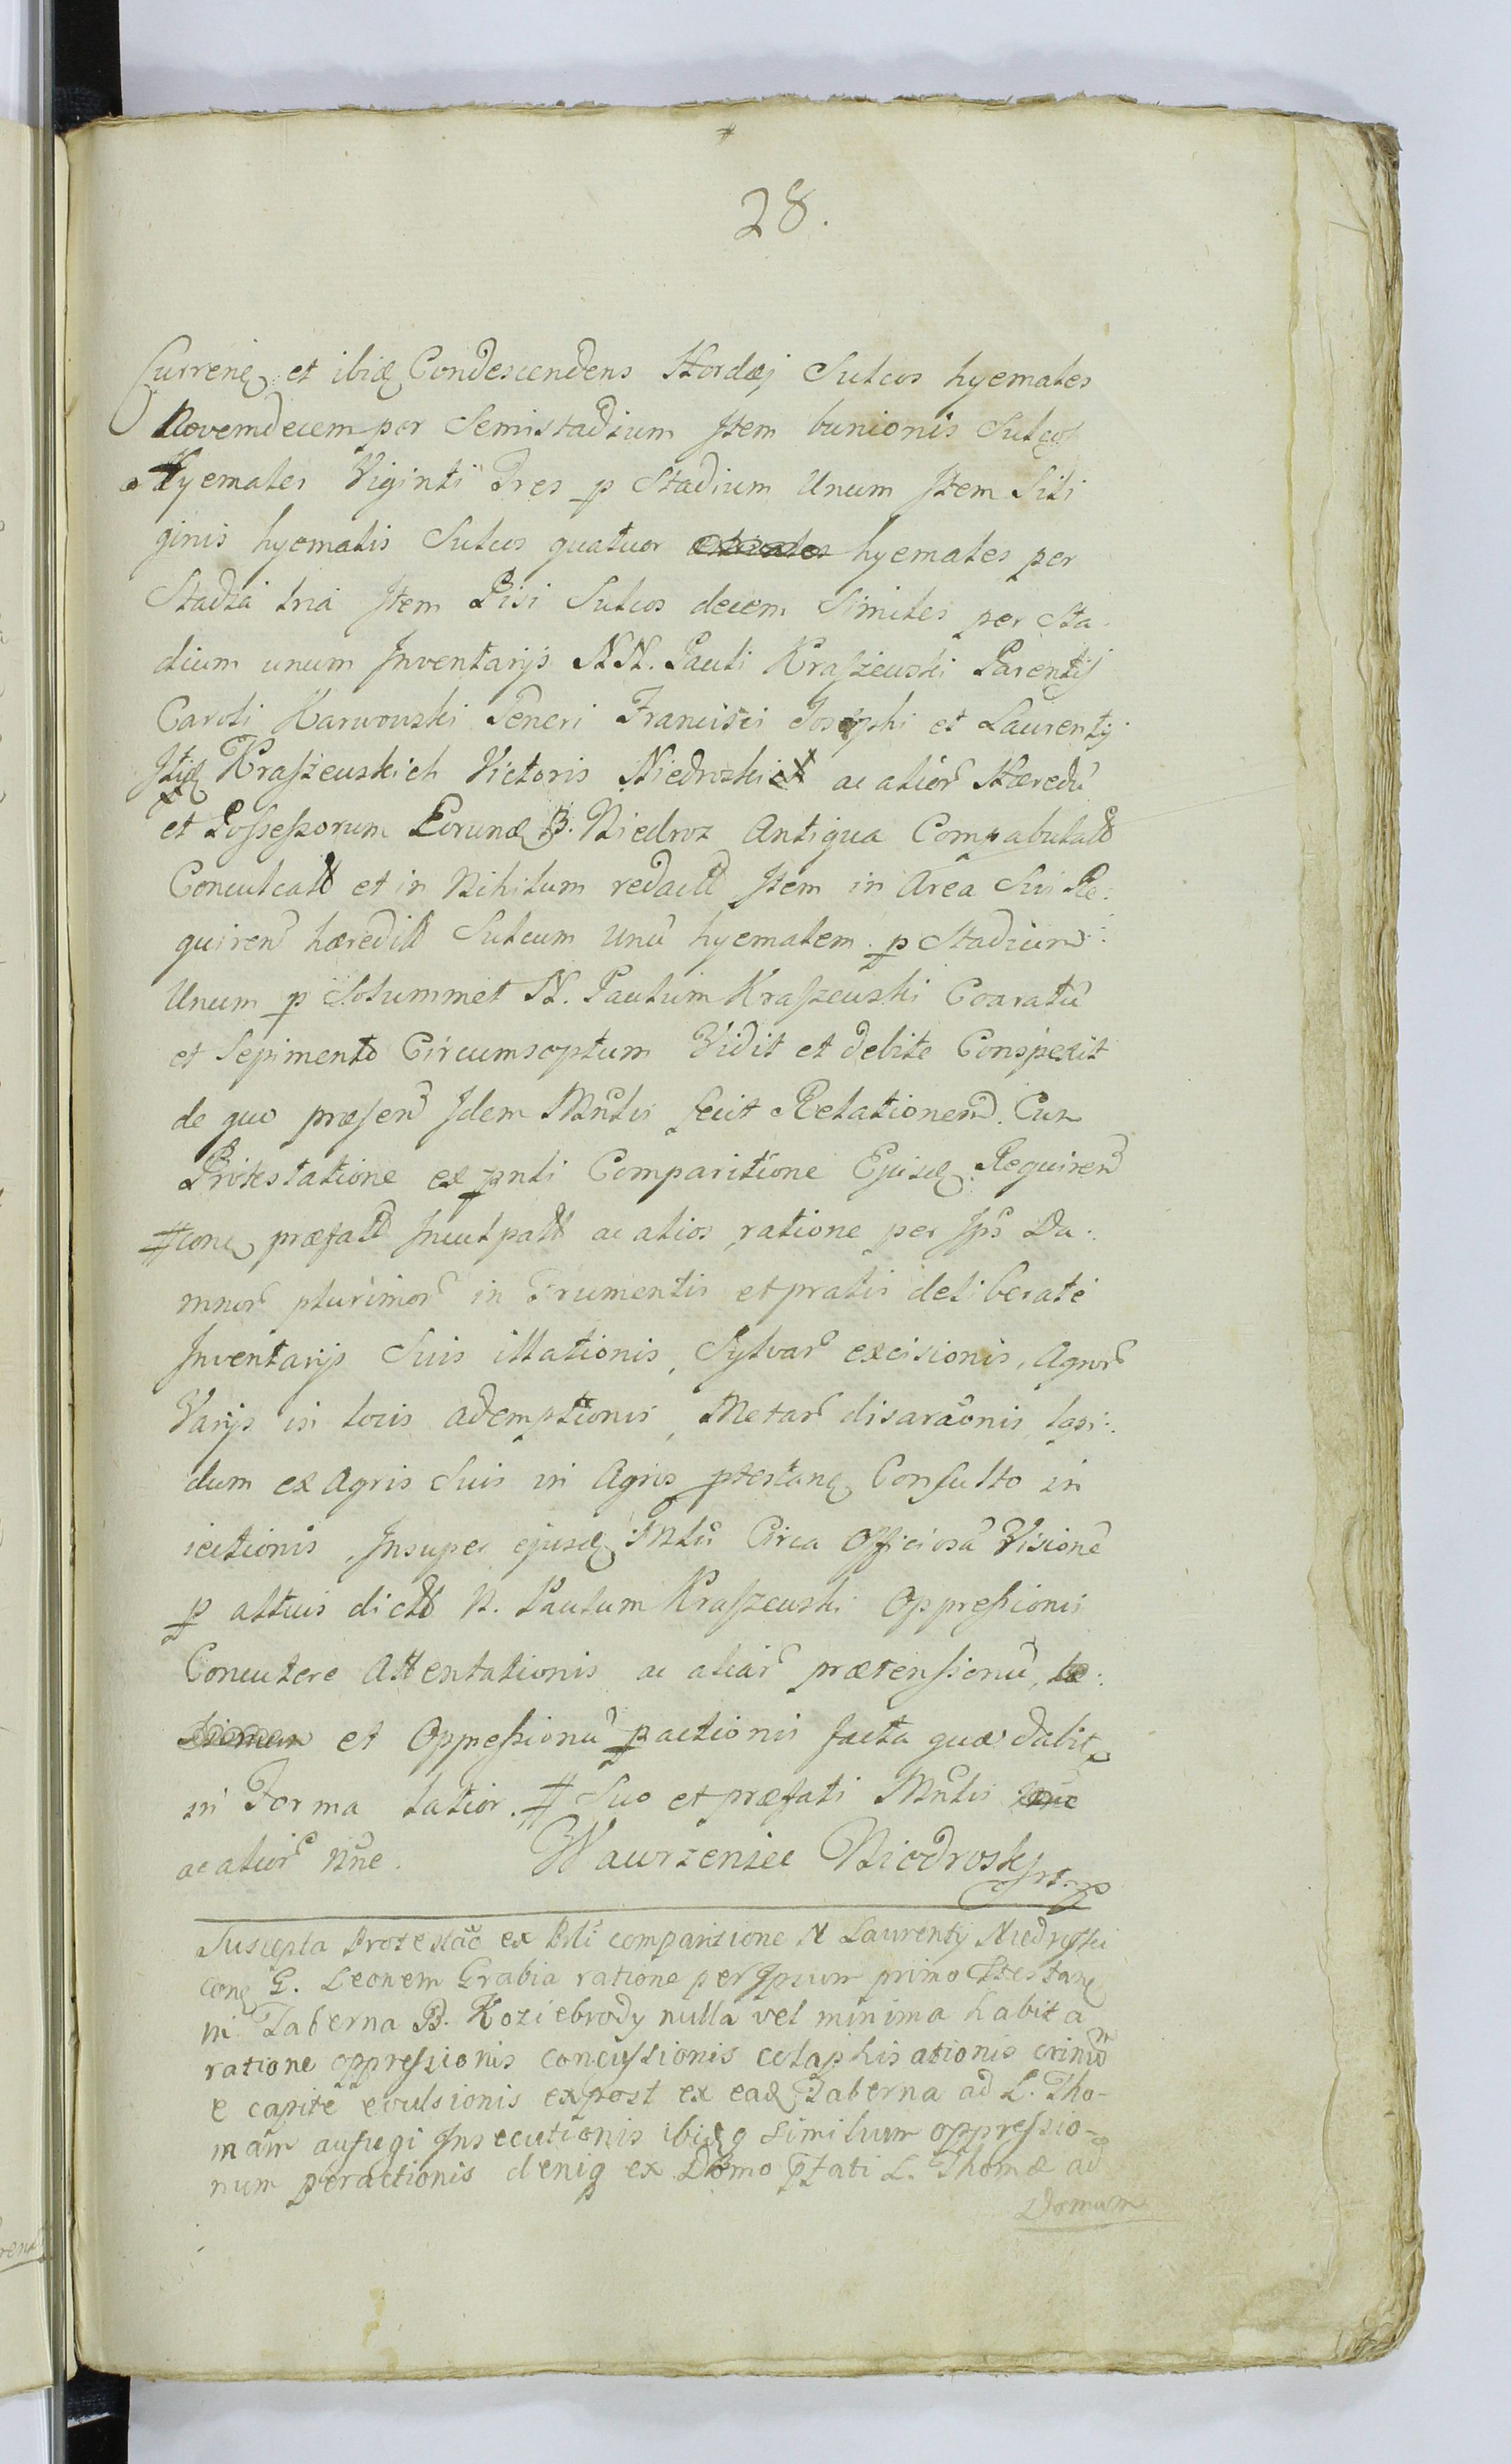 28.
Currenẽ et ibid Condescendens Hordei Sulcos hyemales
Novemdecem per Semistadium Item bunionis Sulcos
Hyemales Viginti Tres p Stadium Unum Item Sili
ginis hyemalis Sulcos quatuor hyemales per
Stadia tria Item Pisi Sulcos decem Similes per Sta-
dium unum Inventarijs NN. Pauli Kraszewski Parentis
Caroli Karwowski Generi Francisci Josephi et Laurentij
Itid Kraszewskich Victoris Niedroski ac alior Hæredũ
et Possessorum Eorund B. Niedroz Antiqua Compabulatt
Conculcatt et in Nihilum redactt Item in Area Sui Re:
quiren hæreditt Sulcum Unũ hyemalem p Stadium
Unum p Solummet N. Paulum Kraszewski Coaratũ
et Sepimento Circumseptum Vidit et debite Conspexit
de quo præsen Idem Mnlis fecit Relationem. Cum
Protestatione ex pnti Comparitione Ejusd Requiren
# cong præfatt Inculpatt ac alios ratione per Ips Da:
mnor plurimor in Frumentis et pratis deliberate
Inventarijs Suis illationis, Sylvar excisionis, Agror
Varijs in locis ademptionis, Metar disaraõnis, lapi:
dum ex Agris Suis in Agros ptestang Consulto in
iectionis, Insuper ejusd Mnlis Circa Officiosã Visionẽ
p altius dictt N. Paulum Kraszewski Oppressionis
Concutere Attentationis ac aliar prætensionũ,
et Oppressionũ pactionis facta quæ dabit
in Forma latior. # Suo et præfati Mnlis
ac alior nne. Wawrzeniec Niedroski
Suscepta Protestaõ ex Pnti comparitione N Laurentij Niedroski
cong G. Leonem Grabia ratione per Ipsum primo Ptestang
in Taberna B. Koziebrody nulla vel minima habita
ratione oppressionis concussionis colaphisationis crinium
e capite evulsionis expost ex ead Taberna ad L. Tho-
mam aufugi Insecutionis ibidq similium oppressio-
num peractionis deniq ex Domo pfati L. Thomæ ad
Domum